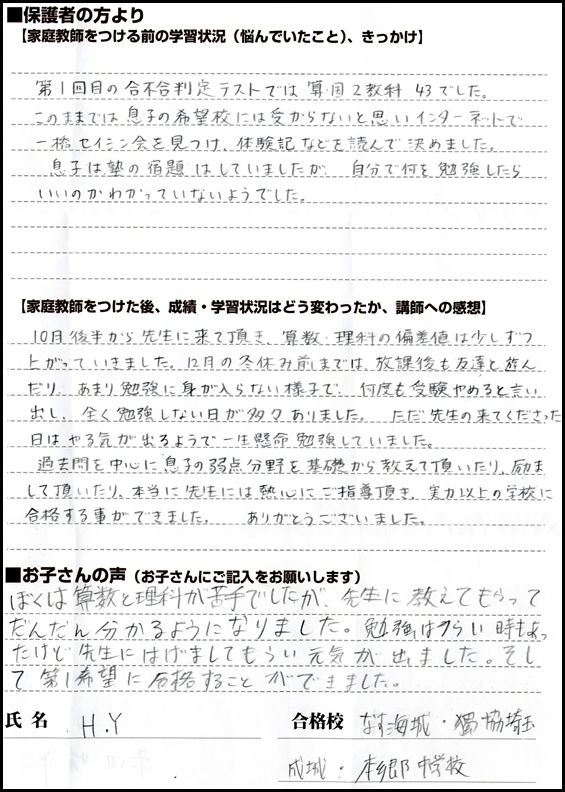 ■保護者の方より
【家庭教師をつける前の学習状況（悩んでいたこと）、きっかけ】
第1回目の合不合判定テストでは算・国2教科 43でした。
このままでは息子の希望校には受からないと思いインターネットで
一橋セイシン会を見つけ、体験記などを読んで決めました。
息子は塾の宿題はしていましたが 自分で何を勉強したら
いいのかわかっていないようでした。
【家庭教師をつけた後、成績・学習状況はどう変わったか、講師への感想】
10月後半から先生に来て頂き、算数・理科の偏差値は少しずつ
上がっていきました。12月の冬休み前までは、放課後も友達と遊ん
だり、あまり勉強に身が入らない様子で、何度も受験やめると言い
出し、全く勉強しない日が多々ありました。 ただ先生の来てくださった
日はやる気が出るようで一生懸命勉強していました。
過去問を中心に息子の弱点分野を基礎から教えて頂いたり、励ま
して頂いたり、本当に先生には熱心にご指導頂き、実力以上の学校に
合格する事ができました。 ありがとうございました。
■お子さんの声（お子さんにご記入をお願いします）
ぼくは算数と理科が苦手でしたが、先生に教えてもらって
だんだん分かるようになりました。勉強はつらい時もあっ
たけど先生にはげましてもらい元気が出ました。そし
て第1希望に合格することができました。
氏名 H.Y 合格校 なす海城・獨協埼玉
成城・本郷中学校